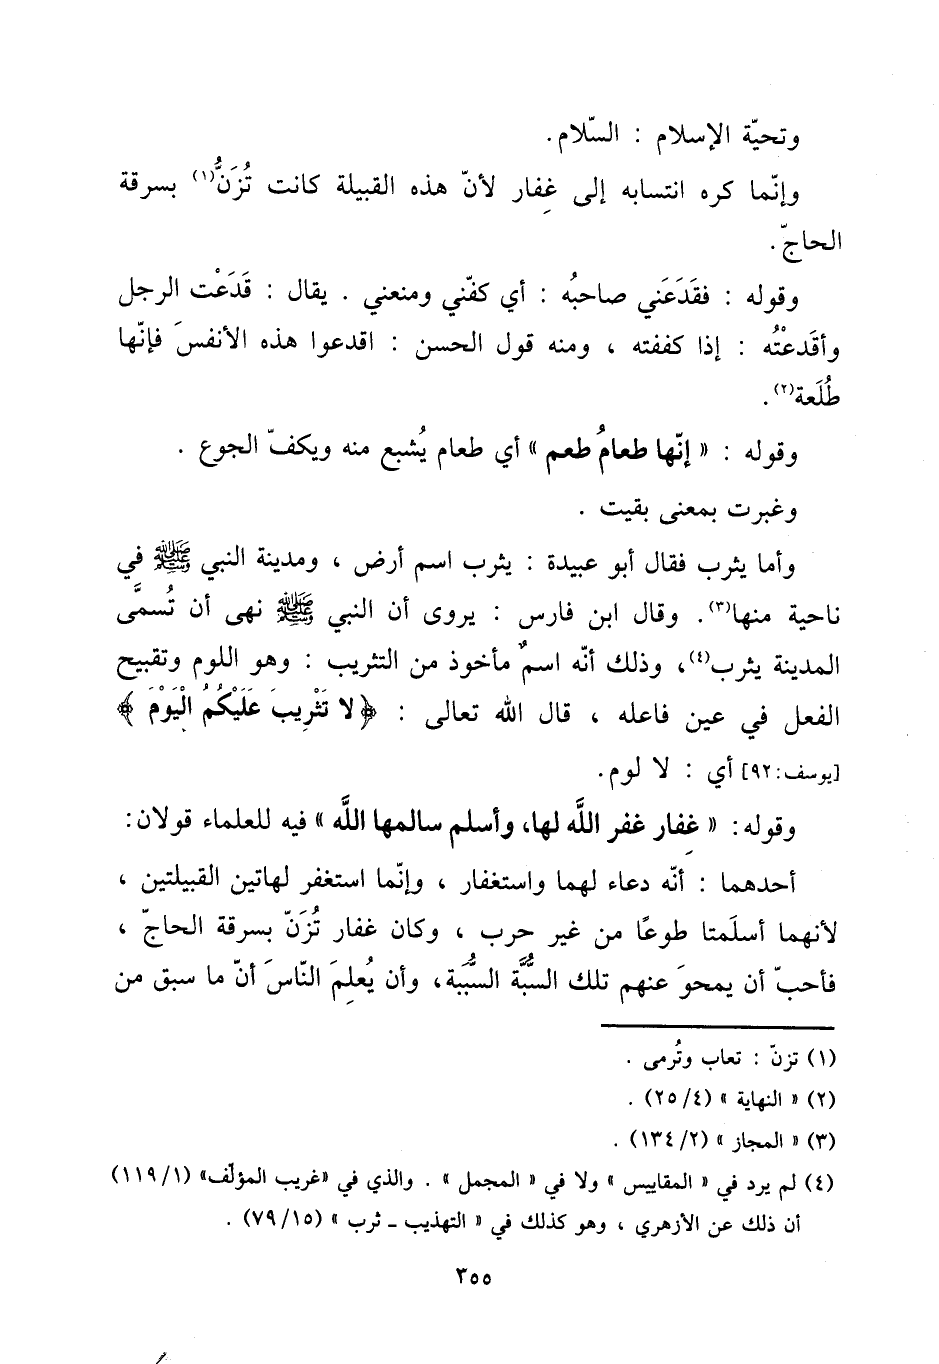 وتحيّة الإسلام : السّلام.
وإنّما كره انتسابه إلى غِفار لأنّ هذه القبيلة كانت تُزَنُّ(١) بسرقة
الحاجّ.
وقوله : فقَدَعَني صاحبُه : أي كفّني ومنعني . يقال : قَدَعْت الرجل
وأقَدعْتُه : إذا كففته ، ومنه قول الحسن : اقدعوا هذه الأنفسَ فإنّها
طُلَعة(٢).
وقوله : « إنّها طعامُ طعم » أي طعام يُشبع منه ويكفّ الجوع .
وغبرت بمعنى بقيت .
وأما يثرب فقال أبو عبيدة : يثرب اسم أرض ، ومدينة النبي ﷺ في
ناحية منها(٣). وقال ابن فارس : يروى أن النبي ﷺ نهى أن تُسمَّى
المدينة يثرب(٤)، وذلك أنّه اسمٌ مأخوذ من التثريب : وهو اللوم وتقبيح
الفعل في عين فاعله ، قال الله تعالى : ﴿لا تَثْرِيبَ عَلَيْكُمُ الْيَوْمَ ﴾
[يوسف: ٩٢] أي : لا لوم.
وقوله: « غِفار غفر اللَّه لها، وأسلم سالمها اللَّه » فيه للعلماء قولان:
أحدهما : أنّه دعاء لهما واستغفار ، وإنّما استغفر لهاتين القبيلتين ،
لأنهما أسلَمتا طوعًا من غير حرب ، وكان غفار تُزَنّ بسرقة الحاجّ ،
فأحبّ أن يمحوَ عنهم تلك السُّبَّة السُّبَبة، وأن يُعلِمَ النّاسَ أنّ ما سبق من
(١) تزنّ : تعاب وتُرمى .
(٢) « النهاية » (٢٥/٤) .
(٣) « المجاز » (١٣٤/٢) .
(٤) لم يرد في « المقاييس » ولا في « المجمل » . والذي في «غريب المؤلّف» (١١٩/١)
أن ذلك عن الأزهري ، وهو كذلك في « التهذيب ـ ثرب » (٧٩/١٥) .
٣٥٥